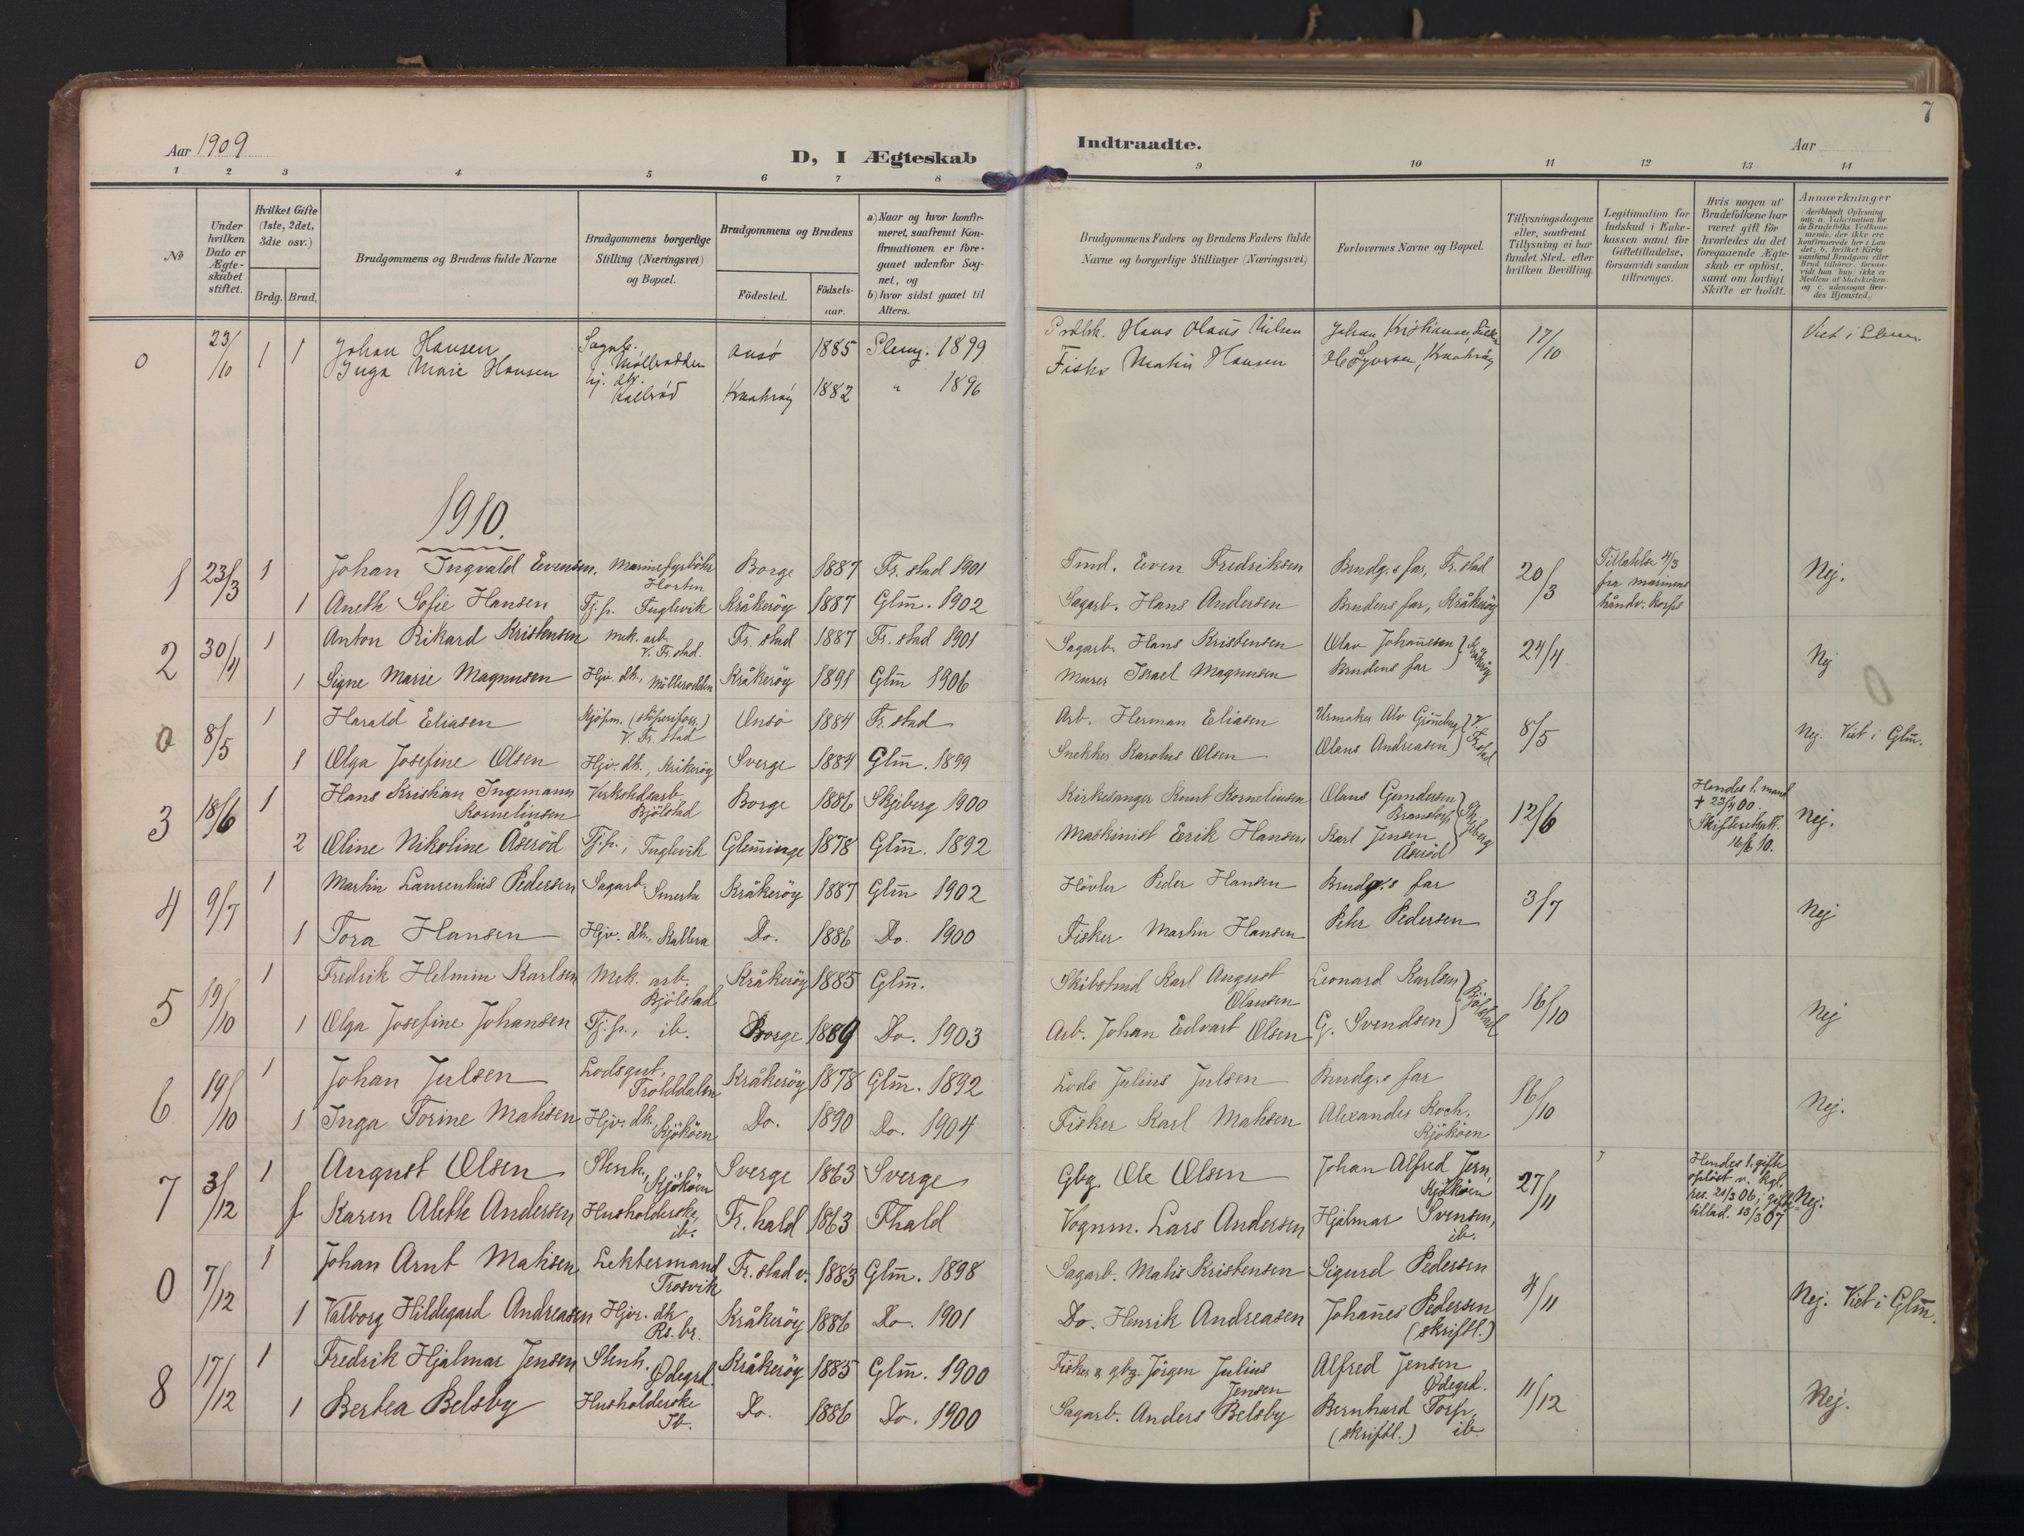 7
Aar 1909
D, I Ægteskab
Indtraadte.
Aar
1 2 3 4 5 6 7 8 9 10 11 12 13 14
No
Under hvilken Dato er Ægteskabet stiftet.
Hvilket Gifte (1ste, 2det, 3die osv.)
Brdg. Brud.
Brudgommens og Brudens fulde Navne
Brudgommens borgerlige Stilling (Næringsvei) og Bopæl.
Brudgommens og Brudens
Fødested.
Fødselsaar.
a) Naar og hvor konfirmeret, saafremt Konfirmationen er foregaaet udenfor Sognet, og
b) hvor sidst gaaet til Alters.
Brudgommens Faders og Brudens Faders fulde Navne og borgerlige Stillinger (Næringsvei)
Forlovernes Navne og Bopæl.
Tillysningsdagene eller, saafremt Tillysning ei har fundet Sted, efter hvilken Bevilling.
Legitimation for Indskud i Enkekassen samt for Giftetilladelse, forsaavidt saadan tiltrænges.
Hvis nogen af Brudefolkene har været gift før hvorledes da det foregaaende Ægteskab er opløst, samt om lovligt Skifte er holdt.
Anmærkninger
0 23/10 1 1 Johan Hansen Møllerodden Onsø 1885 Glemg. 1899 Hans Olaus Nilsen Johan Kristiansen 17/10
Inga Marie Hansen hj. dtr. Kallerød Kraakrøy 1882 " 1896 Fisker Martin Hansen Kraakrøy
1910.
1 23/3 1 Johan Ingvald Evensen. Marinefyrbøter Horten Borge 1887 Fr.stad 1901 Tmd. Even Fredriksen Brudg.s far, Fr.stad 20/3 Tilladelse 4/3 fra marinens håndv. korps Nej.
1 Aneth Sofie Hansen Tj.p. Fuglevik Kråkerøy 1887 Glm. 1902 Sagarb. Hans Andersen Brudens far, Kråkerøy
2 30/4 1 Anton Rikard Kristensen Mek. arb. V. Fr.stad. Fr.stad 1887 Fr.stad 1901 Sagarb. Hans Kristensen Olav Johannesen Kråkerøy 24/4 Nej
1 Signe Marie Magnusen Hjv. dtr., Møllerodden Kråkerøy 1891 Glm 1906 Murer Israel Magnusen Brudens far
0 8/5 1 Harald Eliasen Kjøpm. V. Fr.stad Onsø 1884 Fr.stad Arb. Herman Eliasen Urmaker Alv Grønneberg V. Fr.stad 8/5 Nej. Viet i Glm.
1 Olga Josefine Olsen Hjv. dtr., Kråkerøy Sverge 1884 Glm. 1899 Snekker Karolus Olsen Olaus Andreasen
3 18/6 1 Hans Kristian Ingemann Kornelinsen Kjølstad Borge 1886 Skjeberg 1900 Kirkesanger Knut Kornelinsen Olaus Gundersen Skjeberg 12/6 Hendes 1. mand + 23/4 00. Skifteretsatt. 16/6 10. Nej.
2 Oline Nikoline Åserød Tj.p., Fuglevik Glemminge 1878 Glm. 1892 Maskinist Eerik Hansen Karl Jensen Åserød
4 9/7 1 Martin Laurentius Pedersen Sagarb. Smerta Kråkerøy 1887 Glm 1902 Høvler Peder Hansen Brudg.s far 3/7 Nej
1 Tora Hansen Hjv. dtr., Kallera Do. 1886 Do. 1900 Fisker Martin Hansen Peter Pedersen
5 19/10 1 Fredrik Helmin Karlsen Mek. arb. Kjølstad Kråkerøy 1885 Glm. Skibstmd Karl August Olausen Leonard Karlsen Kjølstad 16/10 Nej
1 Olga Josefine Johansen Tj.p., ib. Borge 1889 Do. 1903 Arb. Johan Edvart Olsen G. Svendsen
6 19/10 1 Johan Julsen Lodsgut, Trolddalen Kråkerøy 1878 Glm. 1892 Lods Julius Julsen Brudg.s far 16/10 Nej.
1 Inga Torine Matisen Hjv. dtr. Kjøkøen Do. 1890 Do. 1904 Fisker Karl Matisen Alexander Koch, Kjøkøen
7 3/12 1 August Olsen Stenh., Kjøkøen Sverge 1863 Sverge Gbg. Ole Olsen Johan Alfred Jern, Kjøkøen 27/11 Hendes 1. gifte opløst v. kgl. res. 21/3 06; gifte tillad. 18/3 07 Nej.
Karen Aleth Andersen Husholderske, ib. Fr.hald 1863 Fhald Vognm. Lars Andersen Hjalmar Svensen, ib.
0 7/12 1 Johan Arnt Matisen Lektermand Trosvik Fr.stad v. 1883 Glm. 1898 Sagarb. Matis Kristensen Sigurd Pedersen 4/11 Nej. Viet i Glm.
1 Valborg Hildegard Andreasen Hjv. dtr Rs. br. Kråkerøy 1886 Do. 1901 Do. Henrik Andreasen Johannes Pedersen (skriftl.)
8 17/12 1 Fredrik Hjalmar Jensen Stenh. Ødegrd. Kråkerøy 1885 Glm. 1900 Fisker & gbg. Jørgen Julius Jensen Alfred Jensen Ødegrd. 11/12 Nej.
1 Bertea Belsby Husholderske Ib. Do. 1886 Do. 1900 Sagarb. Anders Belsby Bernhard Torp, ib. (skriftl.)